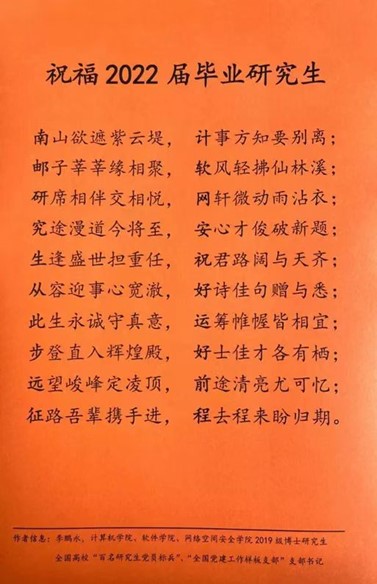 祝福2022届毕业研究生
南山欲遮紫云堤， 计事方知要别离；
邮子莘莘缘相聚， 软风轻拂仙林溪；
研席相伴交相悦， 网轩微动雨沾衣；
究途漫道今将至， 安心才俊破新题；
生逢盛世担重任， 祝君路阔与天齐；
从容迎事心宽澈， 好诗佳句赠与悉；
此生永诚守真意， 运筹帷幄皆相宜；
步登直入辉煌殿， 好士佳才各有栖；
远望峻峰定凌顶， 前途清亮尤可忆；
征路吾辈携手进， 程去程来盼归期。
作者信息：李鹏永，计算机学院、软件学院、网络空间安全学院2019级博士研究生
全国高校“百名研究生党员标兵”、“全国党建工作样板支部”支部书记